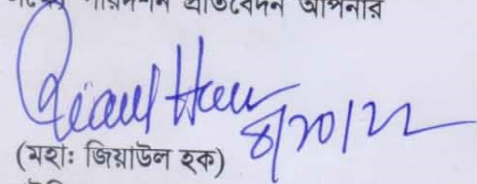 পরিদর্শন প্রতিবেদন আপনার
Ziaul Haque
(মহাঃ জিয়াউল হক)